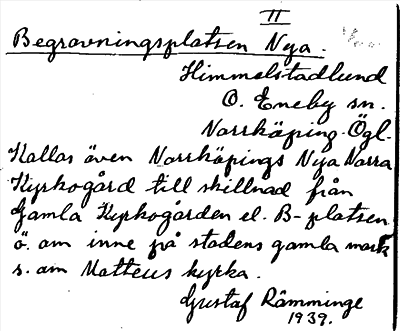 II
Begravningsplatsen Nya.
Himmelstadlund
O. Eneby sn.
Norrköping. Ögl.
Kallas även Norrköpings Nya Norra
Kyrkogård till skillnad från
Gamla Kyrkogården el. B-platsen
ö. om inne på stadens gamla mark
s. om Matteus kyrka.
Gustaf Rämminge
1939.